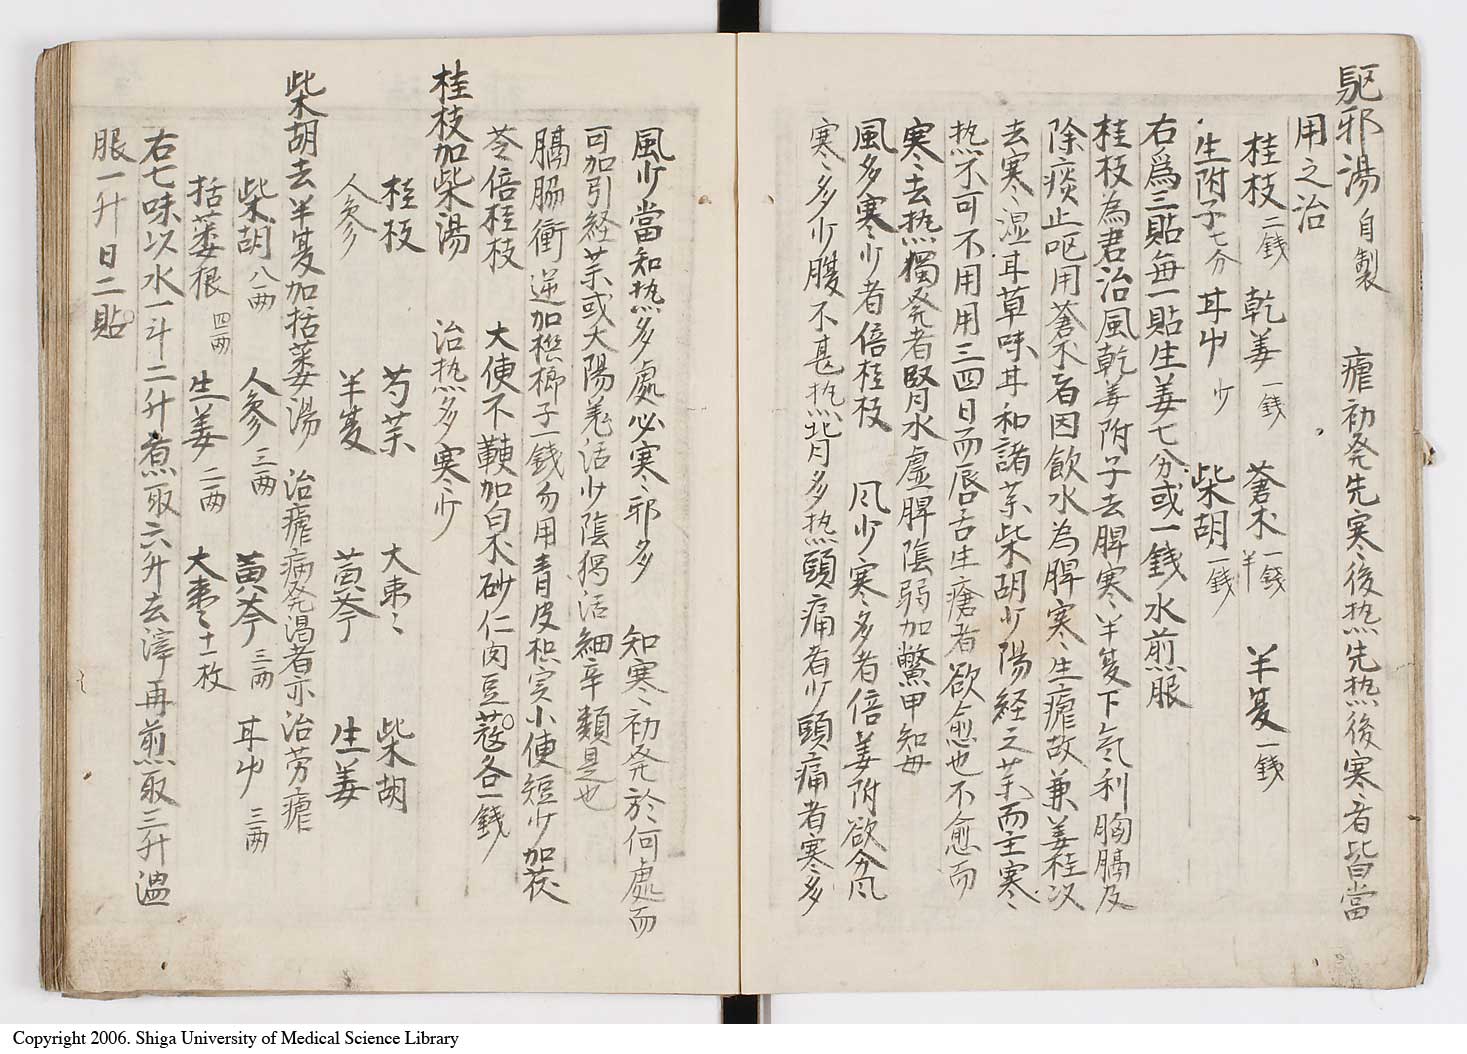 駈邪湯 自製 瘧初発先寒後热先热後寒者皆當
用之治
桂枝 二銭 乾姜 一銭 蒼朮 一銭半 半夏 一銭
生附子 七分 甘艸 少 柴胡 一銭
右爲三貼每一貼生姜七分或一銭水煎服
桂枝為君治風乾姜附子去脾寒半夏下気利胸膈及
除痰止呕用蒼朮者因飲水為脾寒生瘧故兼姜桂以
去寒湿甘草味甘和諸薬柴胡少陽経之薬而主寒
热不可不用用三四日而唇舌生瘡者欲愈也不愈而
寒去热獨発者腎水虚脾陰弱加鱉甲知母
風多寒少者倍桂枝 风少寒多者倍姜附欲分风
寒多少腹不甚热背多热頭痛者少頭痛者寒多
風少當知热多處必寒邪多 知寒初発於何處而
可加引経薬或太陽羌活少陰獨活細辛類是也
膈脇衝逆加梹榔子一銭勿用青皮枳実小便短少加茯
苓倍桂枝 大便不鞕加白朮砂仁肉豆蔲各一銭
桂枝加柴湯 治热多寒少
桂枝 芍薬 大棗 柴胡
人参 半夏 黄芩 生姜
柴胡去半夏加括蒌湯 治瘧病発渇者亦治労瘧
柴胡 八両 人参 三両 黄芩 三両 甘艸 三両
括蒌根 四両 生姜 二両 大棗 十二枚
右七味以水一斗二升煮取六升去滓再煎取三升温
服一升日二貼
Copyright 2006. Shiga University of Medical Science Library